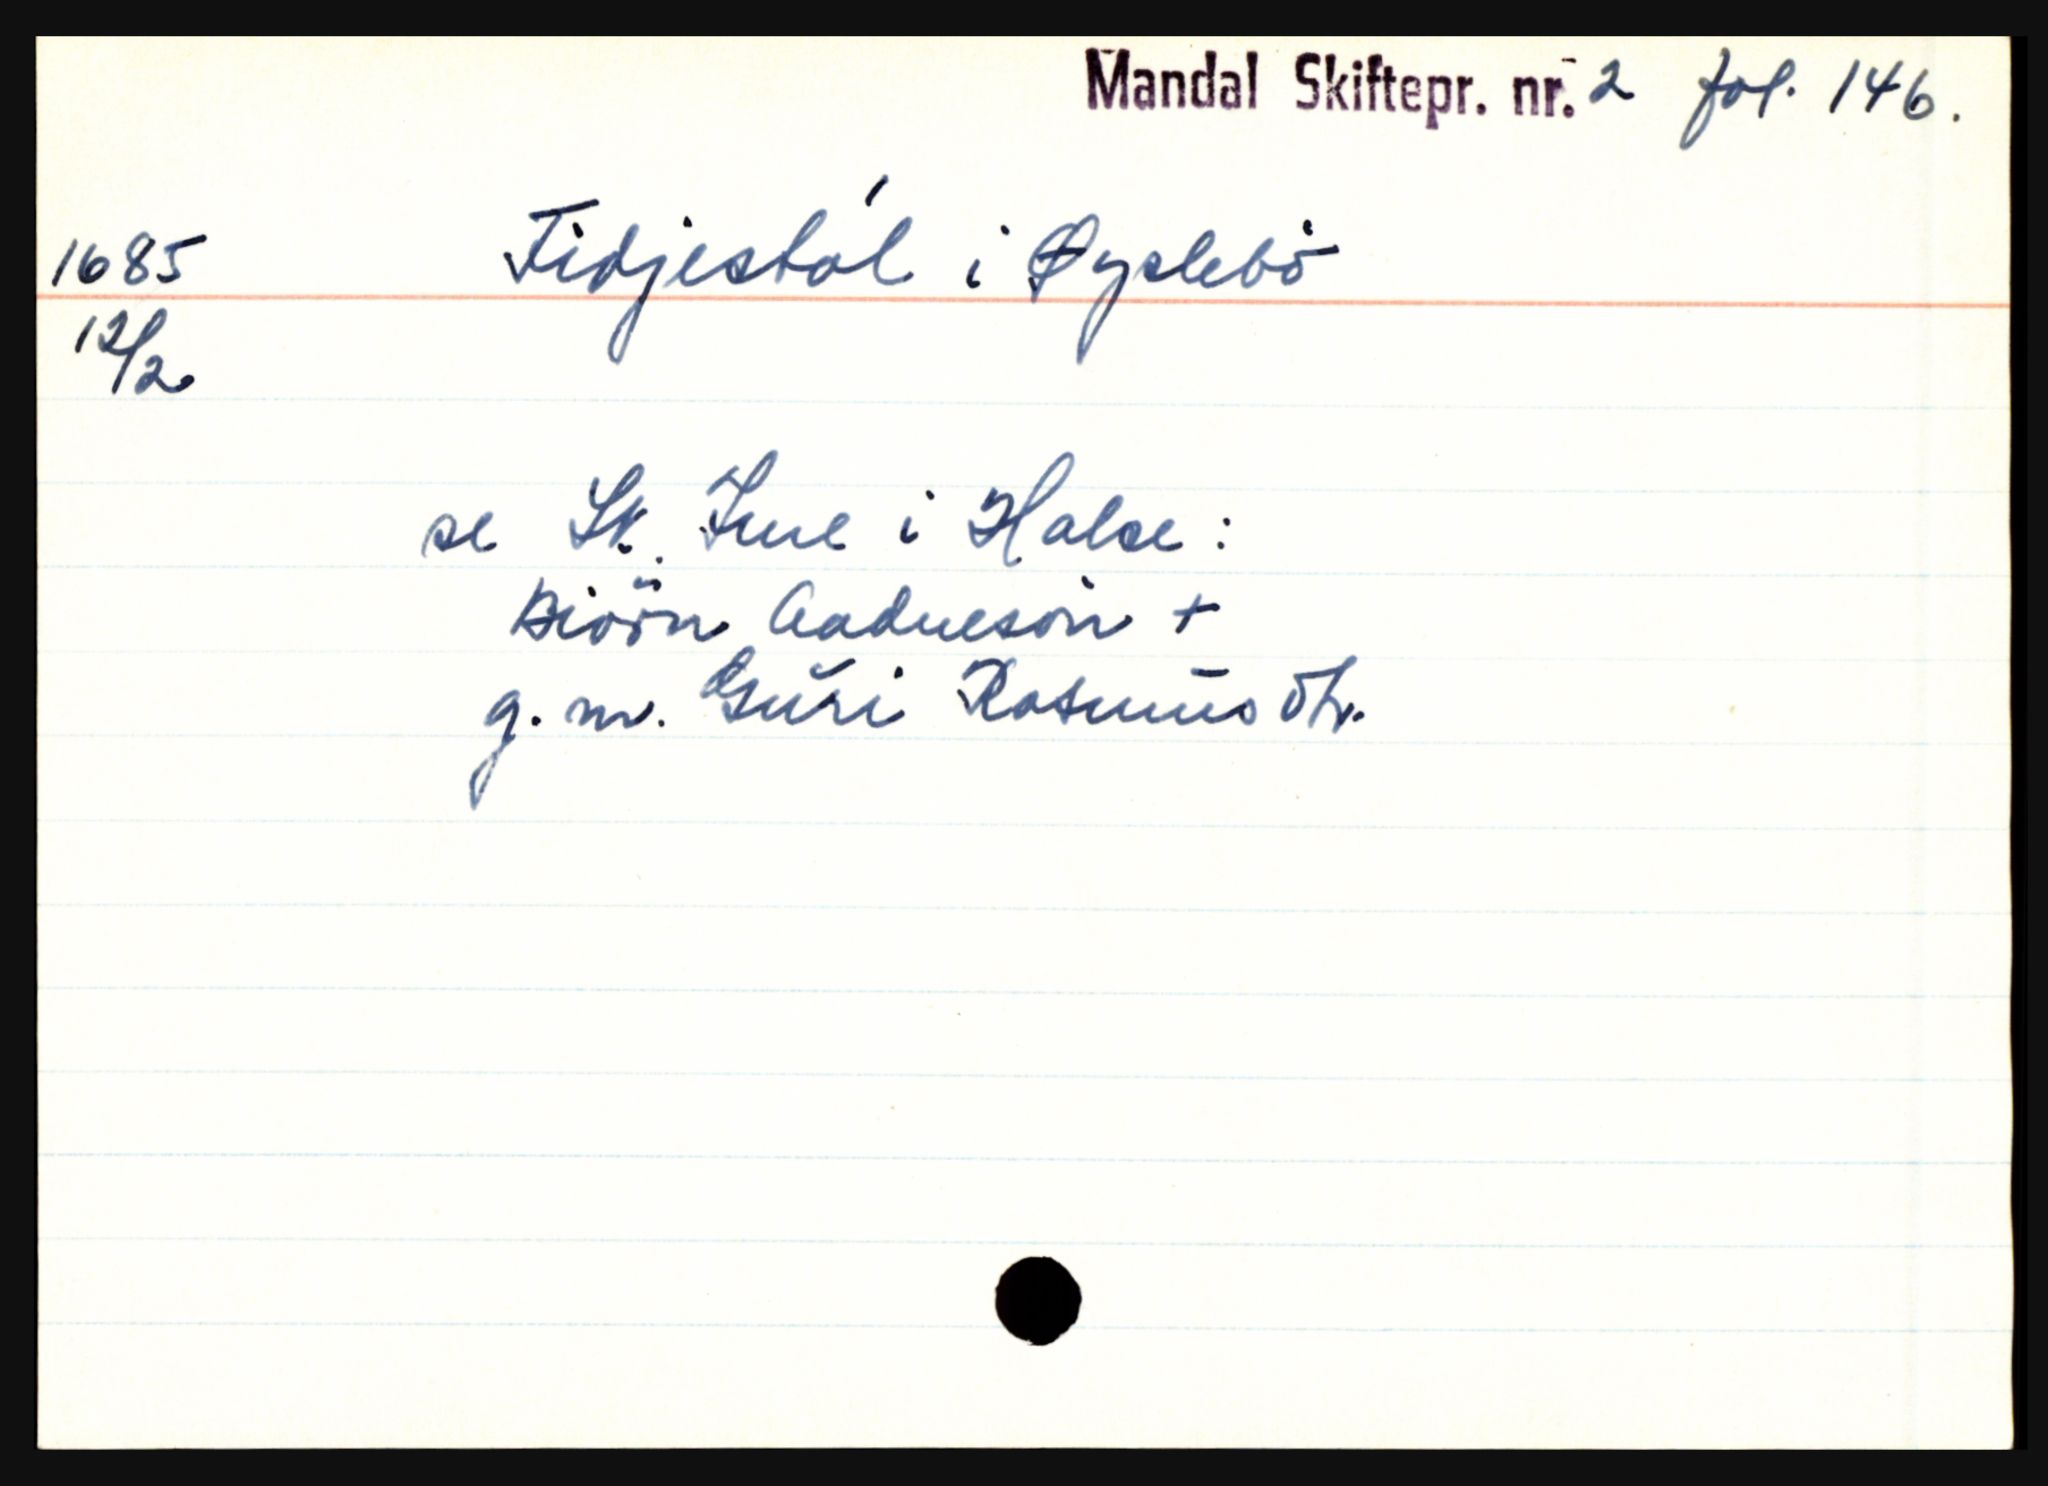 Mandal Skiftepr. nr. 2 fol. 146.
1685 Fidjestøl i Øyslebö
12/2
se St. Ime i Halse:
Biörn Aadneson +
g. m. Guri Rasmusdtr.